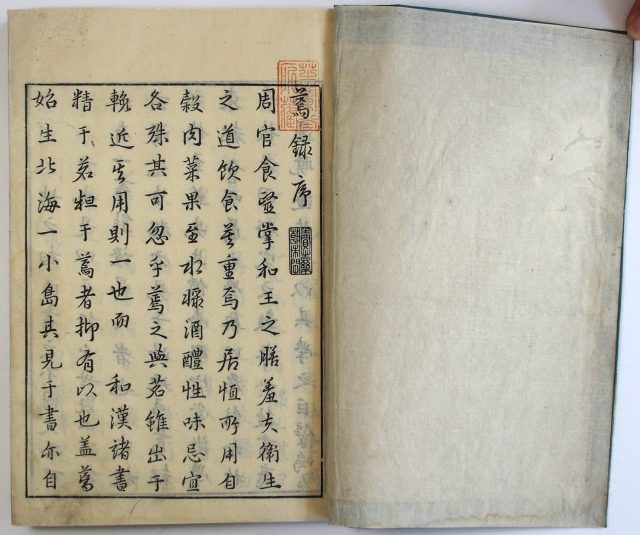 蔫録序
周官食醫掌和王之膳羞夫衛生
之道飲食重焉乃居恒所用自
穀肉菜果至水漿酒醴性味忌宜
各殊其可忽乎蔫之與茗雖出于
輓近其用則一也而 和漢諸書
精于茗粗于蔫者抑有以也蓋蔫
始生北海一小島其見于書亦自